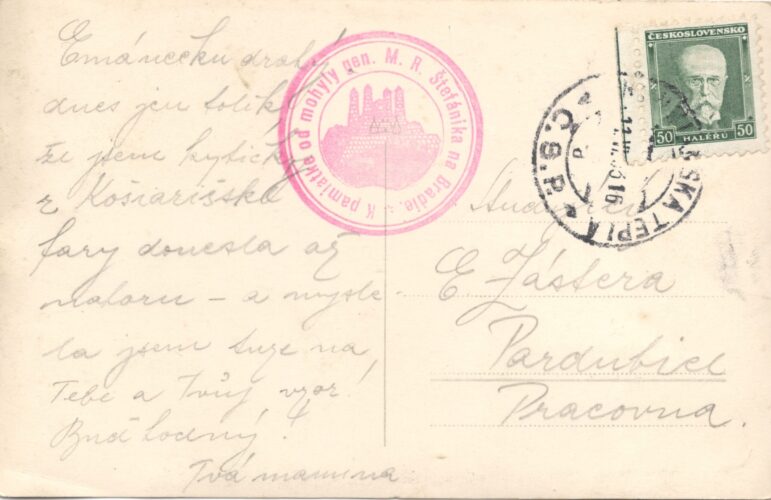 Emánečku drahý
dnes jen tolik
že jsem kytičky
z Košiarišské
fary donesla až
nahoru – a mysle-
la jsem tuze na
Tebe a Tvůj vzor!
Buď hodný!
Tvá maminka
K pamiatke od mohyly gen. M. R. Štefánika na Bradle.
ČESKOSLOVENSKO
50 HALÉŘŮ 50
SKÁ TEPLÁ
Č.S.P.
E Zástěra
Pardubice
Pracovna.